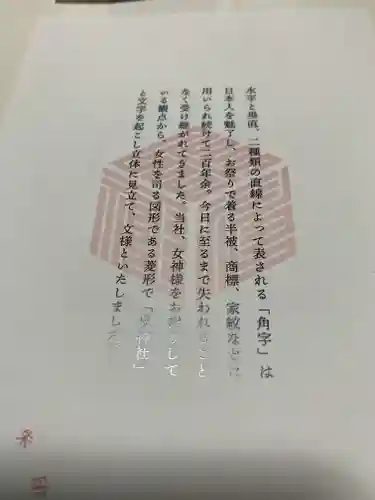 水平と垂直、二種類の直線によって表される「角字」は
日本人を魅了し、お祭りで着る半被、商標、家紋などに
用いられ続けて二百年余。今日に至るまで失われること
なく受け継がれてきました。当社、女神様をお祀りして
いる観点から、女性を司る図形である菱形で「 神社」
と文字を起こし立体に見立て、文様といたしました